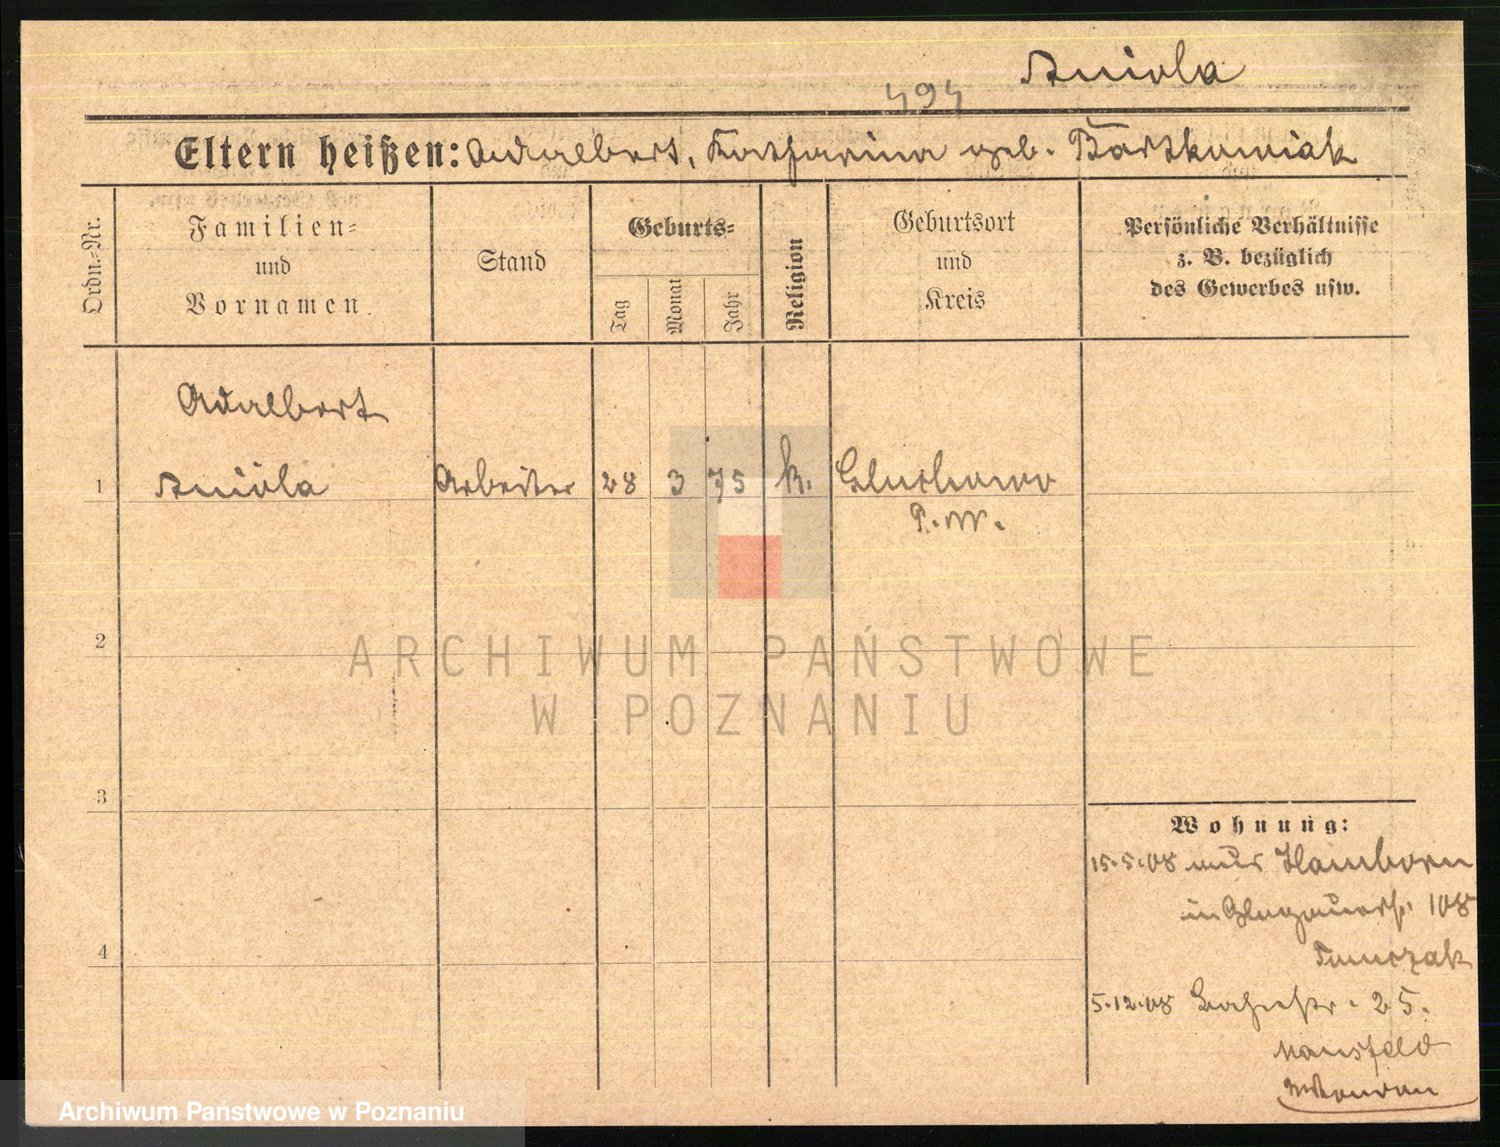 Aniola
494
Eltern heißen: Adalbert, Katharina geb. Bartkowiak
Ordn.-Nr.
Familien-
und
Vornamen.
Stand
Geburts-
Tag
Monat
Jahr
Religion
Geburtsort
und
Kreis
Persönliche Verhältnisse
z. B. bezüglich
des Gewerbes usw.
Adalbert
1 Aniola Arbeiter 28 3 75 k. Gluchowo
P. W.
2
3
4
Wohnung:
15.5.08 aus Hamborn
in Glogauerstr. 108
Tomczak
5.12.08 25.
Mansfeld
ARCHIWUM PAŃSTWOWE
W POZNANIU
Archiwum Państwowe w Poznaniu